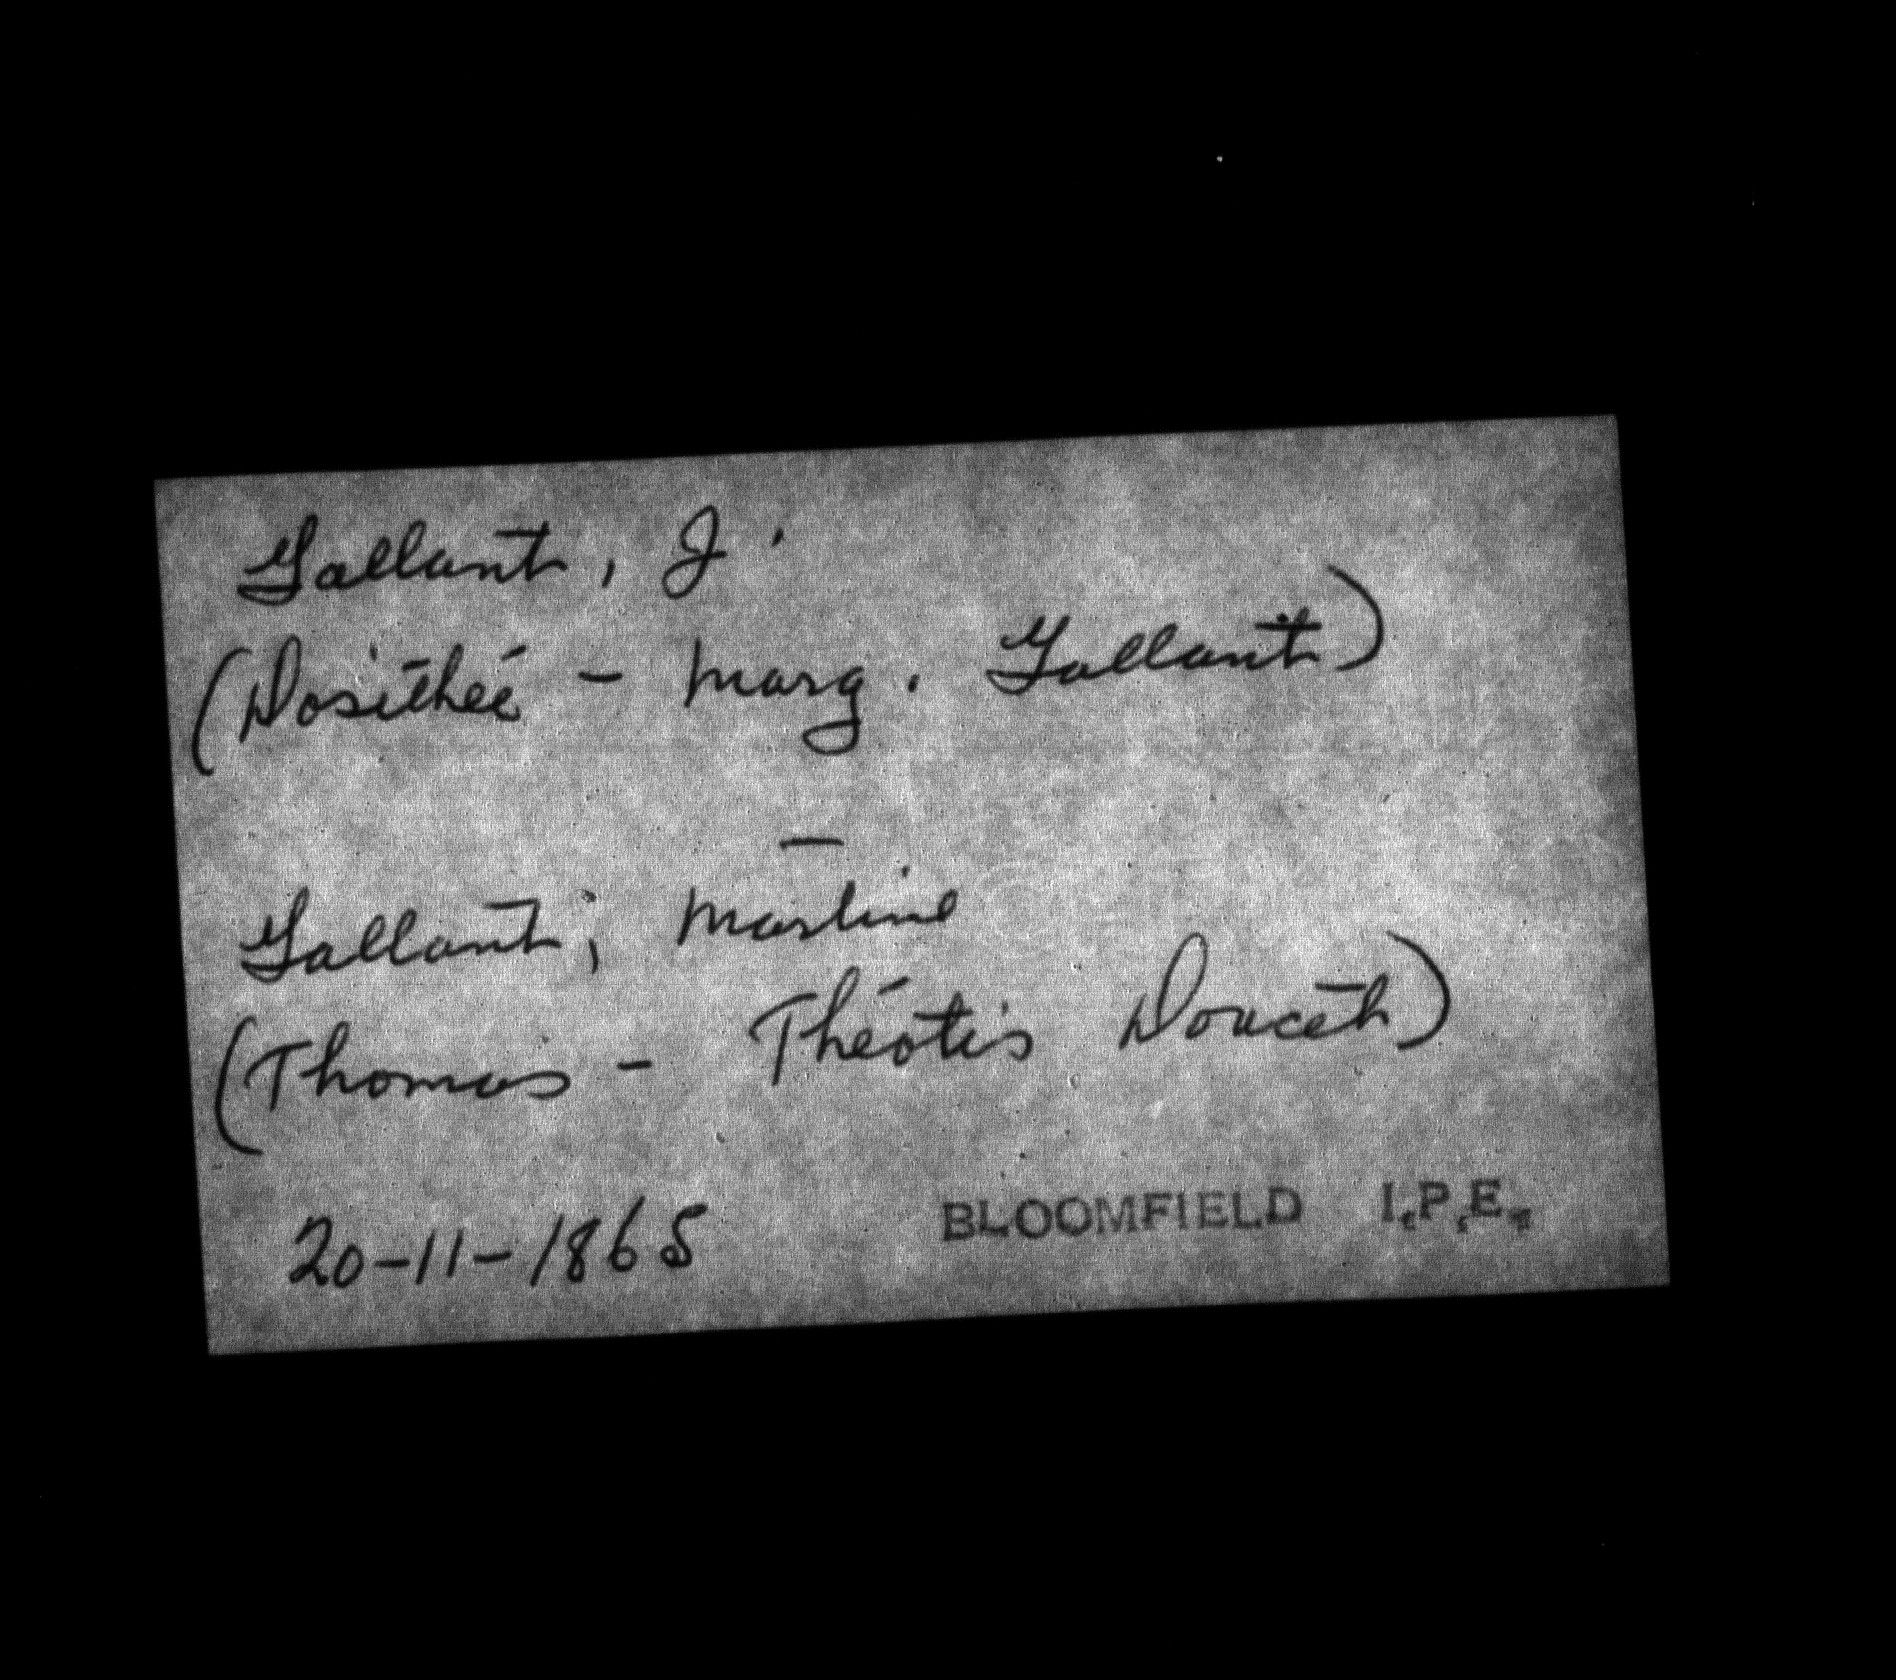 Gallant, J.
(Dosithée - Marg. Gallant)
—
Gallant, Martine
(Thomas - Théotis Doucet)
20-11-1865 BLOOMFIELD I.P.E.